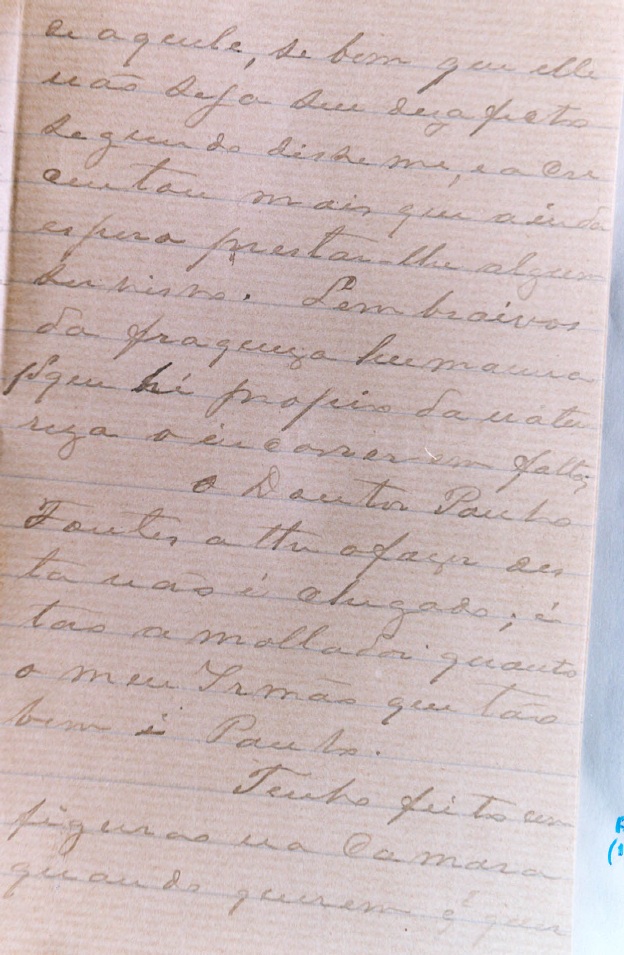 e aquele, se bem que elle
não seja seu dezafecto
segundo disse me, e a cre
centou mais que ainda
espera prestar-lhe algum
servisso. Lembraivos
da fraqueza humanna
que hé propio da natu
reza o incorrer em faltas
o Doutor Paulo
Fontes athe o fazer des
ta não é chegado; é
tão amollador quanto
o meu Irmão que tão
bem é Paulo.
Tenho feito em
figuras na Camara
quando querem q̃ quer